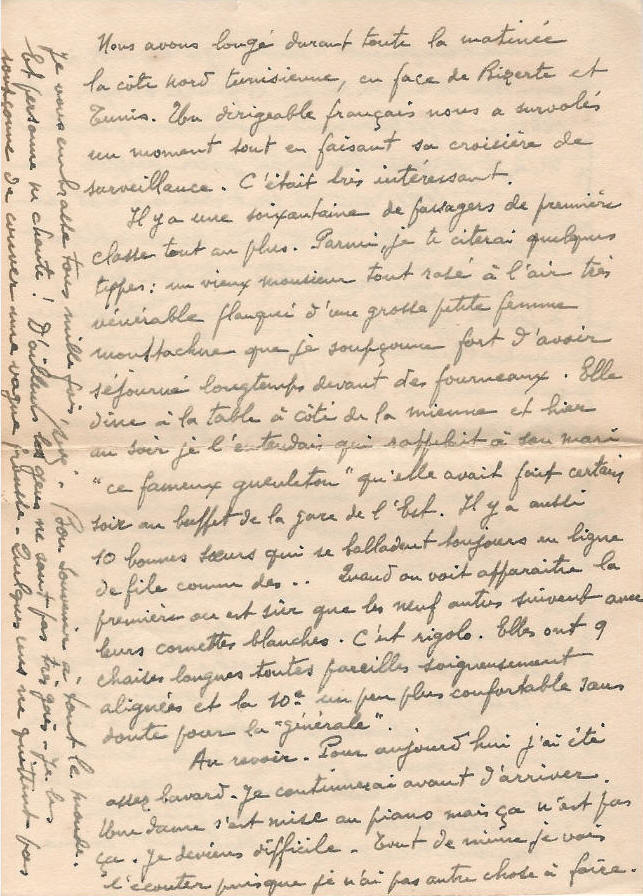 Nous avons longé durant toute la matinée
la côte nord tunisienne, en face de Bizerte et
Tunis. Un dirigeable français nous a survolés
un moment tout en faisant sa croisière de
surveillance. C'était très intéressant.
Il y a une soixantaine de passagers de première
classe tout au plus. Parmi, je te citerai quelques
types: un vieux monsieur tout rasé à l'air très
vénérable flanqué d'une grosse petite femme
moustachue que je soupçonne fort d'avoir
séjourné longtemps devant des fourneaux. Elle
dîne à la table à côté de la mienne et hier
au soir je l'entendais qui rappelait à son mari
"ce fameux gueuleton" qu'elle avait fait certain
soir au buffet de la gare de l'Est. Il y a aussi
10 bonnes sœurs qui se balladent toujours en ligne
de file comme des .. Quand on voit apparaître la
première on est sûr que les neuf autres suivent avec
leurs cornettes blanches. C'est rigolo. Elles ont 9
chaises longues toutes pareilles soigneusement
alignées et la 10e un peu plus confortable sans
doute pour la "générale".
Au revoir. Pour aujourd'hui j'ai été
assez bavard. Je continuerai avant d'arriver.
Une dame s'est mise au piano mais ça n'est pas
ça. Je deviens difficile. Tout de même je vais
l'écouter puisque je n'ai pas autre chose à faire.
Et personne ne chante! D'ailleurs les gens ne sont pas très gais. Je les
soupçonne de couver une vague frousse. Quelques uns ne quittent pas
Je vous embrasse tous mille fois. Bon souvenir à tout le monde.